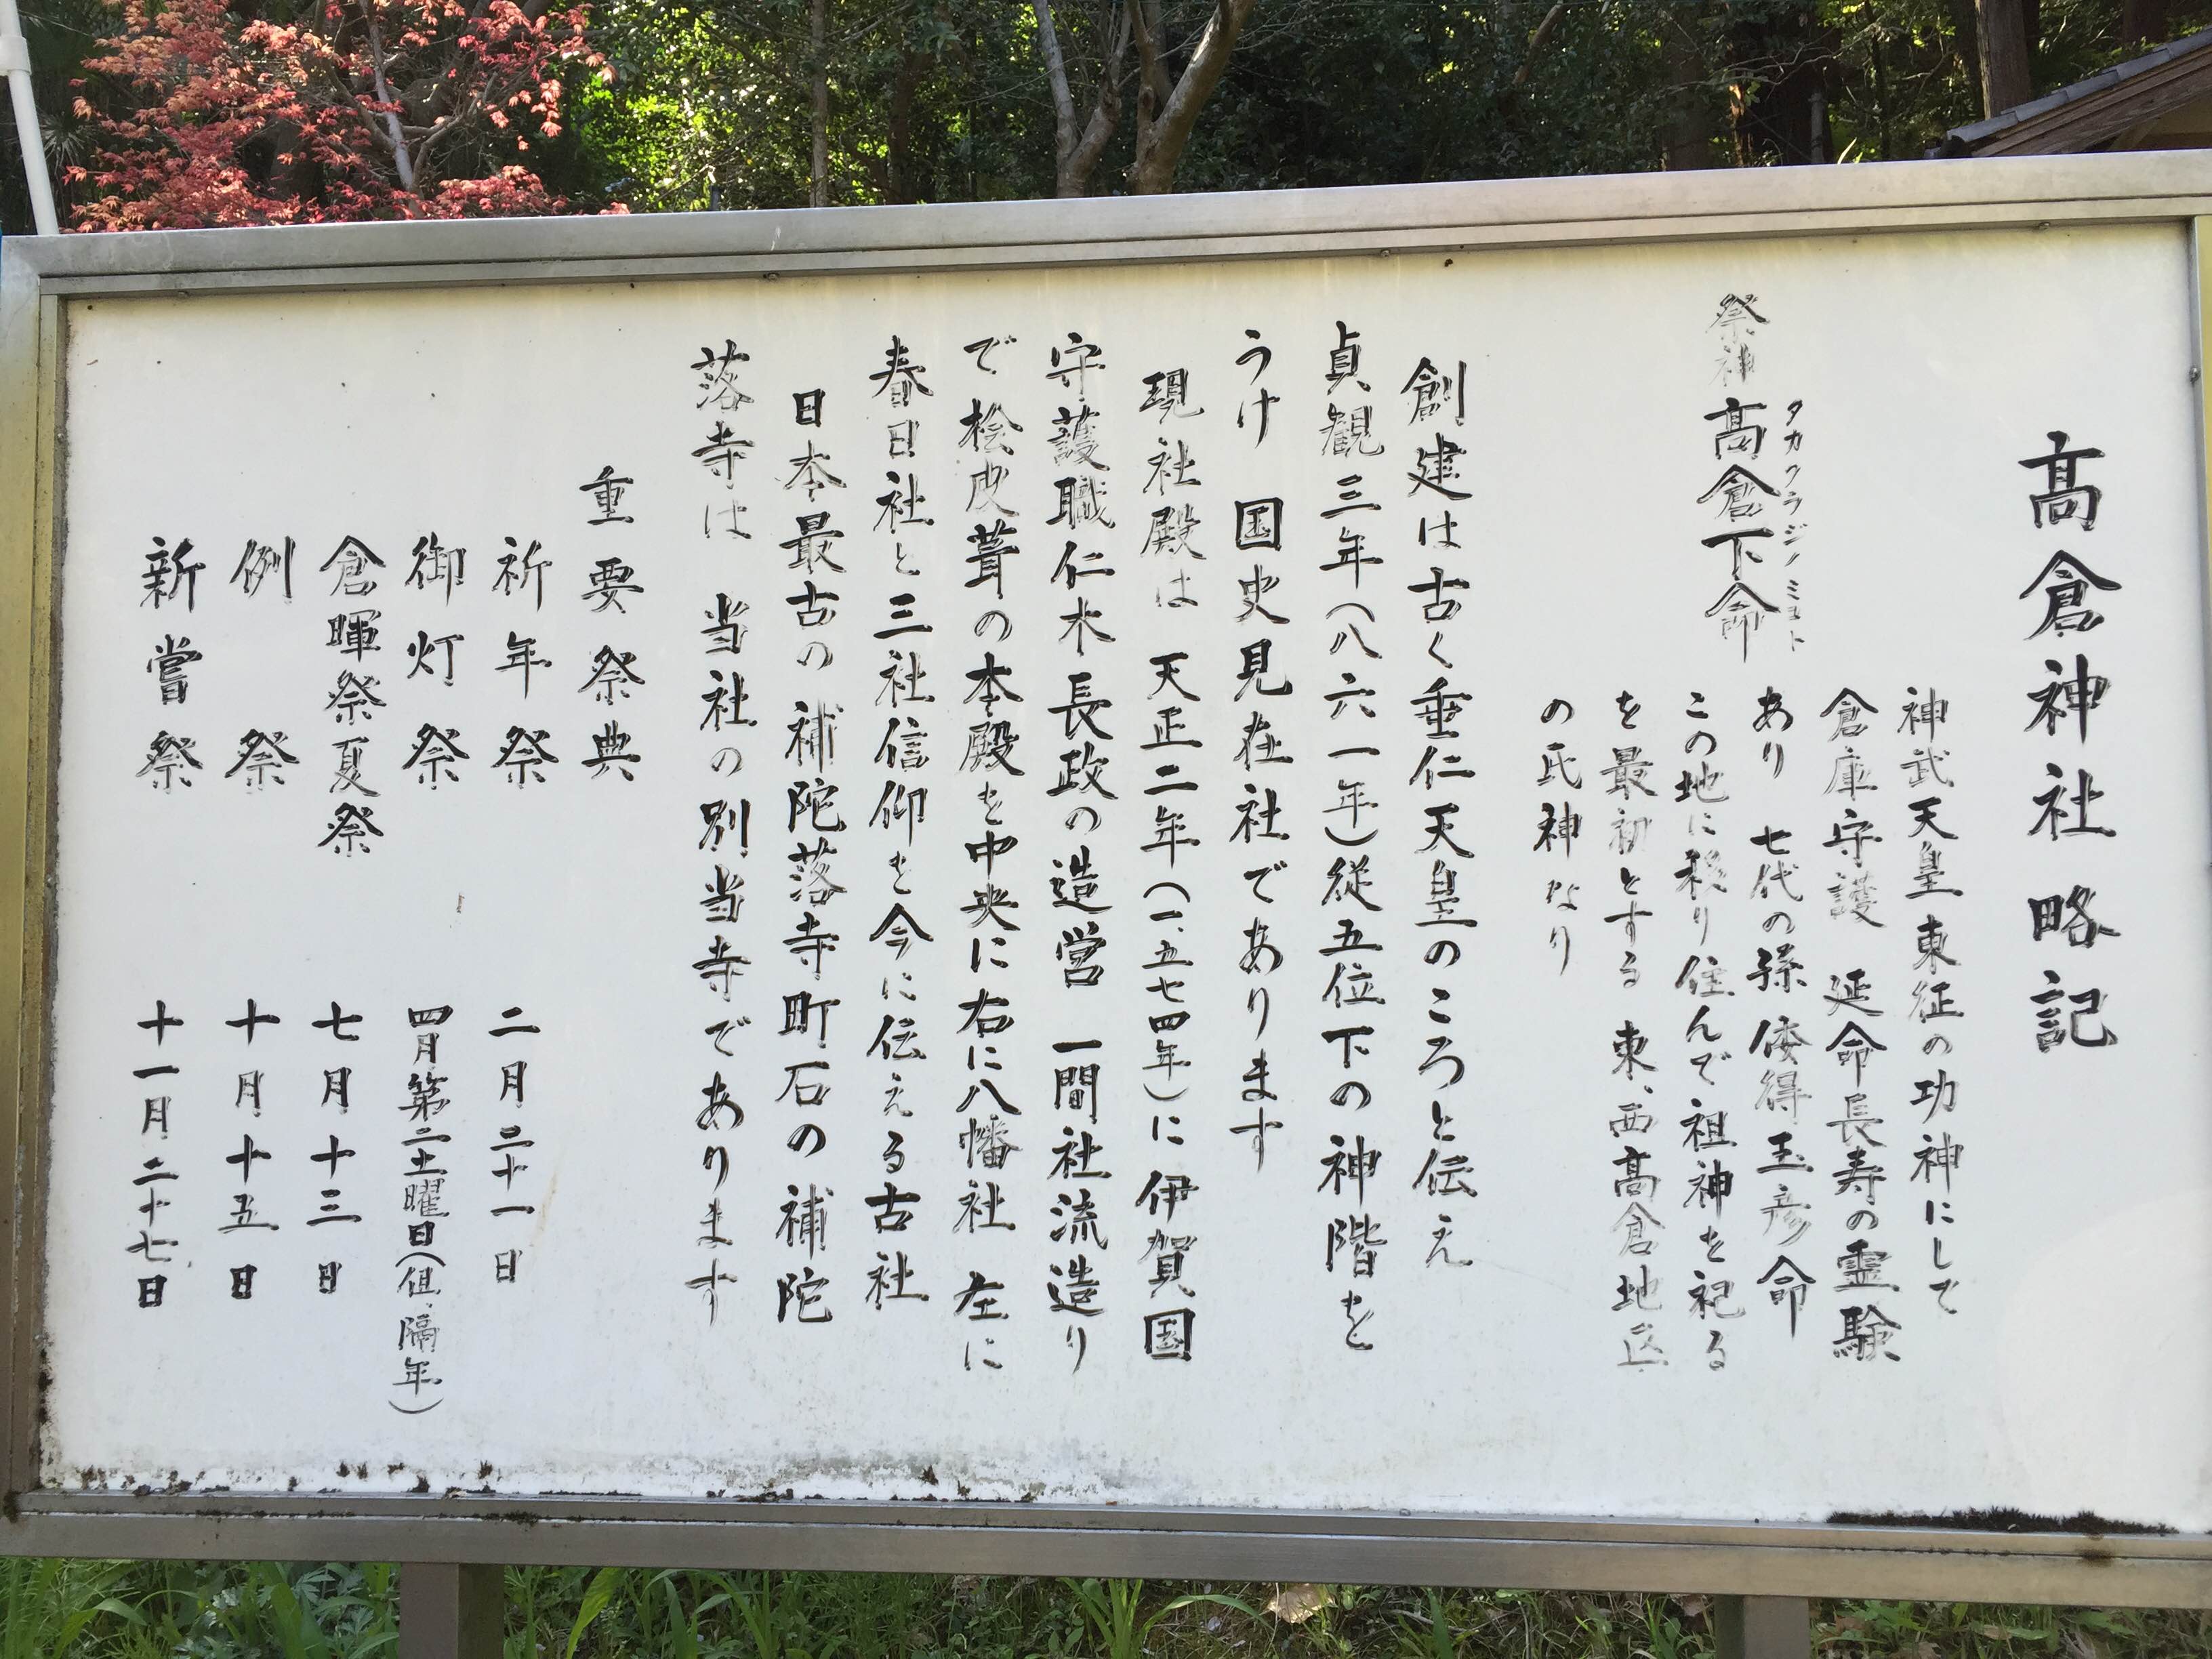 高倉神社略記
祭神 高倉下命
タカクラジノミコト
神武天皇東征の功神にして
倉庫守護 延命長寿の霊験
あり 七代の孫 倭得玉彦命
この地に移り住んで祖神を祀る
を最初とする 東、西高倉地区
の氏神なり
創建は古く垂仁天皇のころと伝え
貞観三年(八六一年)従五位下の神階を
うけ 国史見在社であります
現社殿は 天正二年(一五七四年)に 伊賀国
守護職仁木長政の造営 一間社流造り
で桧皮葺の本殿を中央に右に八幡社 左に
春日社と三社信仰を今に伝える古社
日本最古の 補陀落寺町石の補陀
落寺は 当社の別当寺であります
重要祭典
祈年祭 二月二十一日
御灯祭 四月第二土曜日(但、隔年)
倉暉祭夏祭 七月十三日
例祭 十月十五日
新嘗祭 十一月二十七日